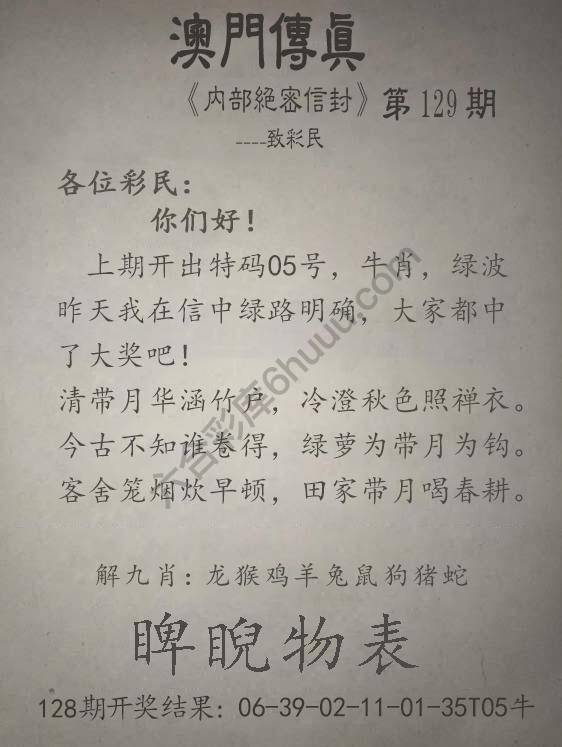 澳門傳真
《内部絕密信封》第129期
----致彩民
各位彩民：
你们好！
上期开出特码05号，牛肖，绿波
昨天我在信中绿路明确，大家都中
了大奖吧！
清带月华涵竹户，冷澄秋色照禅衣。
今古不知谁卷得，绿萝为带月为钩。
客舍笼烟炊早顿，田家带月喝春耕。
解九肖：龙猴鸡羊兔鼠狗猪蛇
睥睨物表
128期开奖结果：06-39-02-11-01-35T05牛
六合彩库6huuu.com